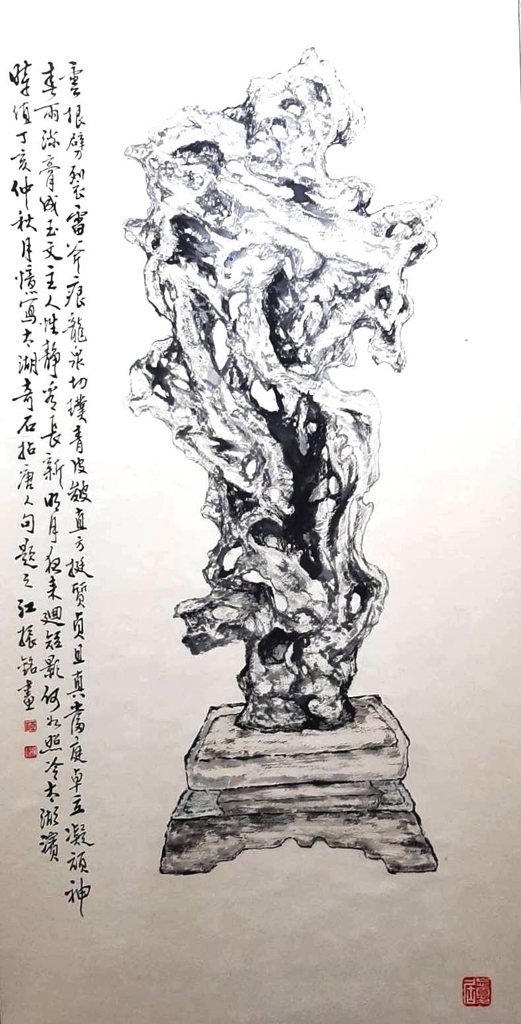 雲根劈裂雷斧痕龍泉切璞青皮皴直方挺質貞且真當庭卓立凝頑神
春雨涤膏成玉文主人性靜看長新明月夜来迴短影何如照冷太湖濱
時值丁亥仲秋月憶寫太湖奇石拈唐人句題之江振銘畫